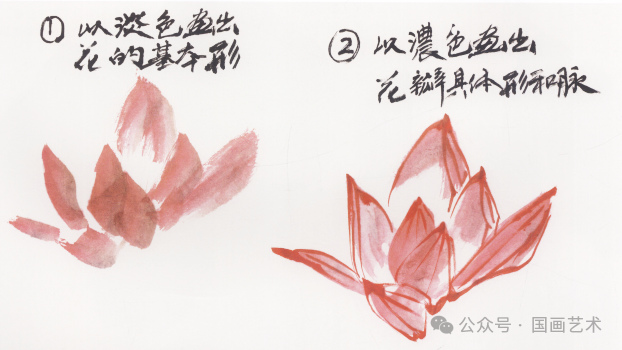 ① 以淡色画出
花的基本形
② 以濃色画出
花瓣具体形和脉
公众号·国画艺术